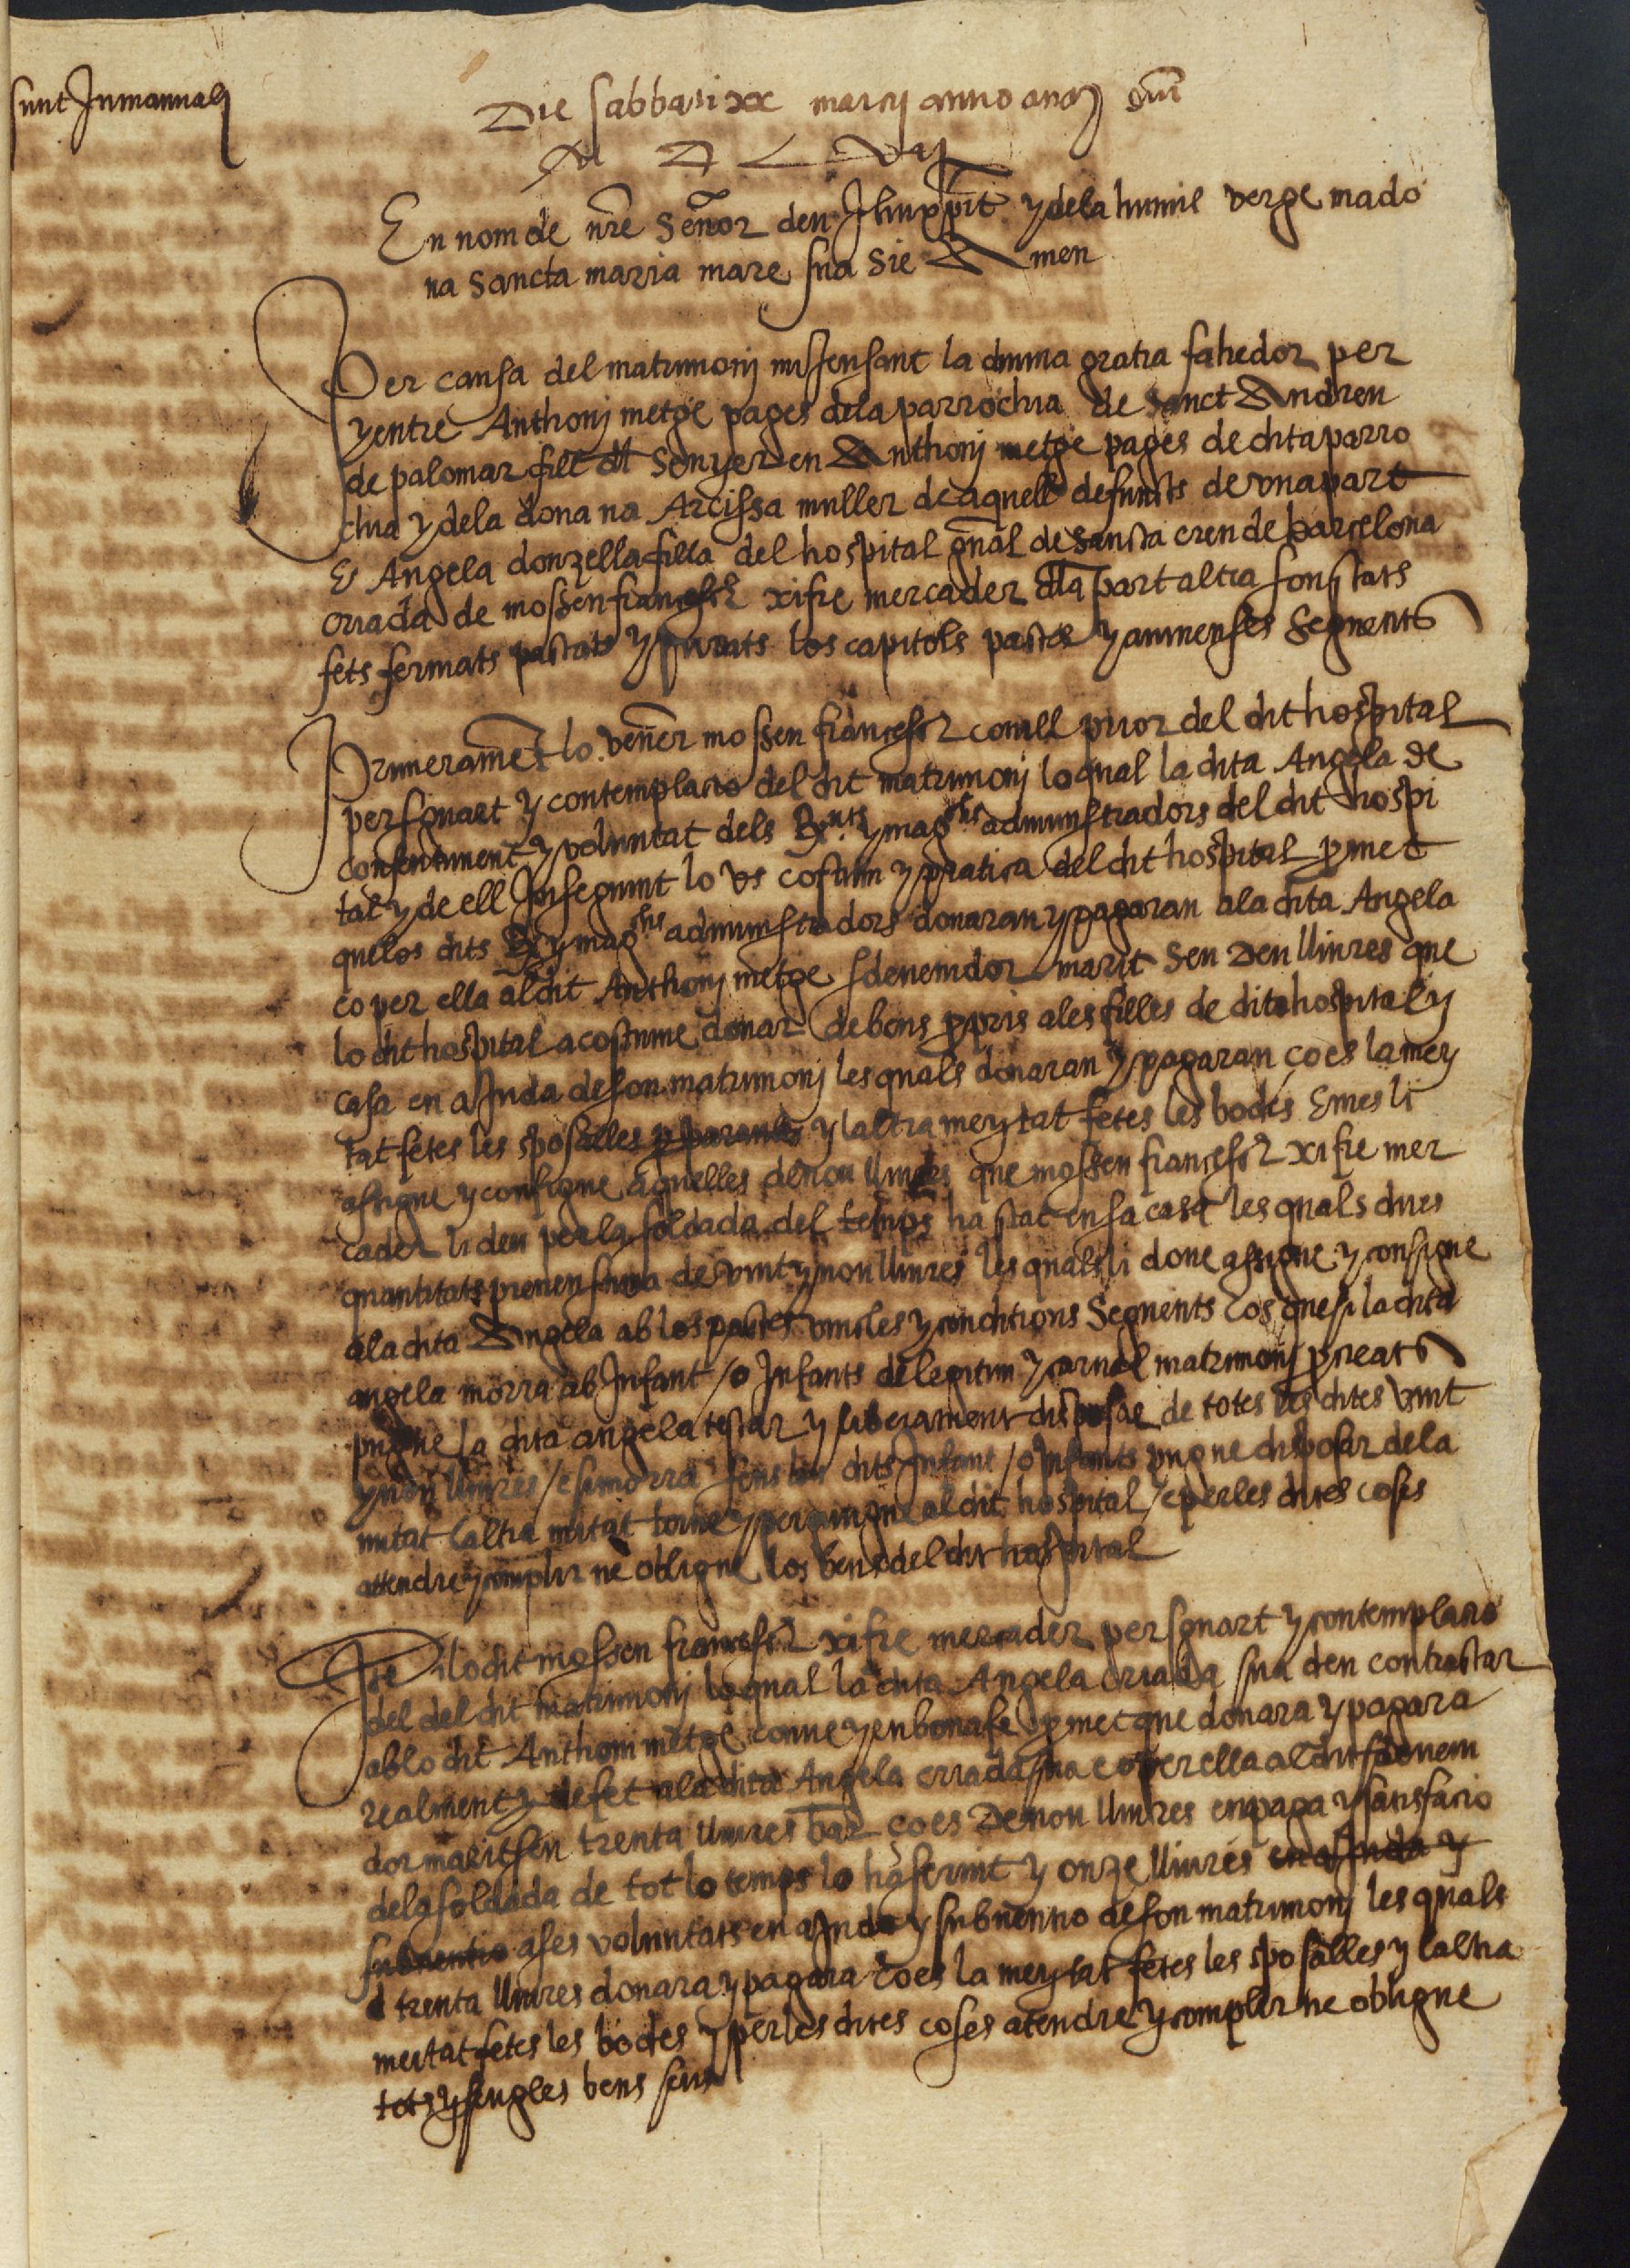 sunt In manuali
Die sabbati xx marcij anno a nat dni
M D L vij
En nom de nre Señor deu Jhuxpist y dela humil verge mado
na sancta maria mare sua sie Amen
Per causa del matrimonj missensant la diuina gratia fahedor per
y entre Anthonj metge pages dela parrochia de sanct Andreu
de palomar fill dl senyer en Anthonj metge pages de dita parro
chia y dela dona na Arcissa muller de aquell defuncts de vna part
E Angela donzella filla del hospital gñal de sancta creu de barcelona
criada de mossen francesch xifre mercader dla part altra son stats
fets fermats pactats y jurats los capitols pactes y auinenses seguents
Primerament lo vener mossen francesch conill prior del dit hospital
per sguart y contemplacio del dit matrimonj lo qual la dita Angela de
consentiment y voluntat dels Rnts y magchs administradors del dit hospi
tal y de ell Inseguint lo vs costum y pratica del dit hospital pmet
que los dits R y magchs administradors donaran y pagaran ala dita Angela
co per ella al dit Anthonj metge sdeuenidor marit seu Deu lliures que
lo dit hospital acostume donar de bens ppris ales filles de dit hospital y
casa en ajuda de son matrimonj les quals donaran y pagaran ço es la mey
tat fetes les sposalles y laltra meytat fetes les bodes E mes li
assigne y consigne aquelles denou lliures que mossen francesch xifre mer
cader li deu per la soldada del temps ha stat en sa casa les quals dites
quantitats prenen suma de vint y nou lliures les quals li done assigne y consigne
ala dita Angela ab los pactes vincles y conditions seguents ço es que si la dita
angela morra ab Infant / o Infants de legitim y carnal matrimonj pcreats
pugue la dita angela testar y liberament disposar de totes les dites vint
y nou lliures / e si morra sens los dits Infant / o Infants pugue disposar dela
mitat laltra mitat torne y peruingue al dit hospital / e per les dites coses
attendre y complir ne obligue los bens del dit hospital
Ite lo dit mossen francesch xifre mercader per sguart y contemplacio
del del dit matrimonj lo qual la dita Angela criada sua deu contractar
ab lo dit Anthoni metge conue y en bona fe pmet que donara y pagara
realment y de fet ala dita Angela criada sua e o per ella al dit sdeueni
dor marit seu trenta lliures bar ço es Denou lliures en paga y satisfacio
dela soldada de tot lo temps lo ha seruit y onze lliures en ajuda y
subuentio a ses voluntats en ajuda y subuentio de son matrimonj les quals
trenta lliures donara y pagara ço es la meytat fetes les sposalles y laltra
meitat fetes les bodes y per les dites coses atendre y complir ne obligue
tots y sengles bens seus